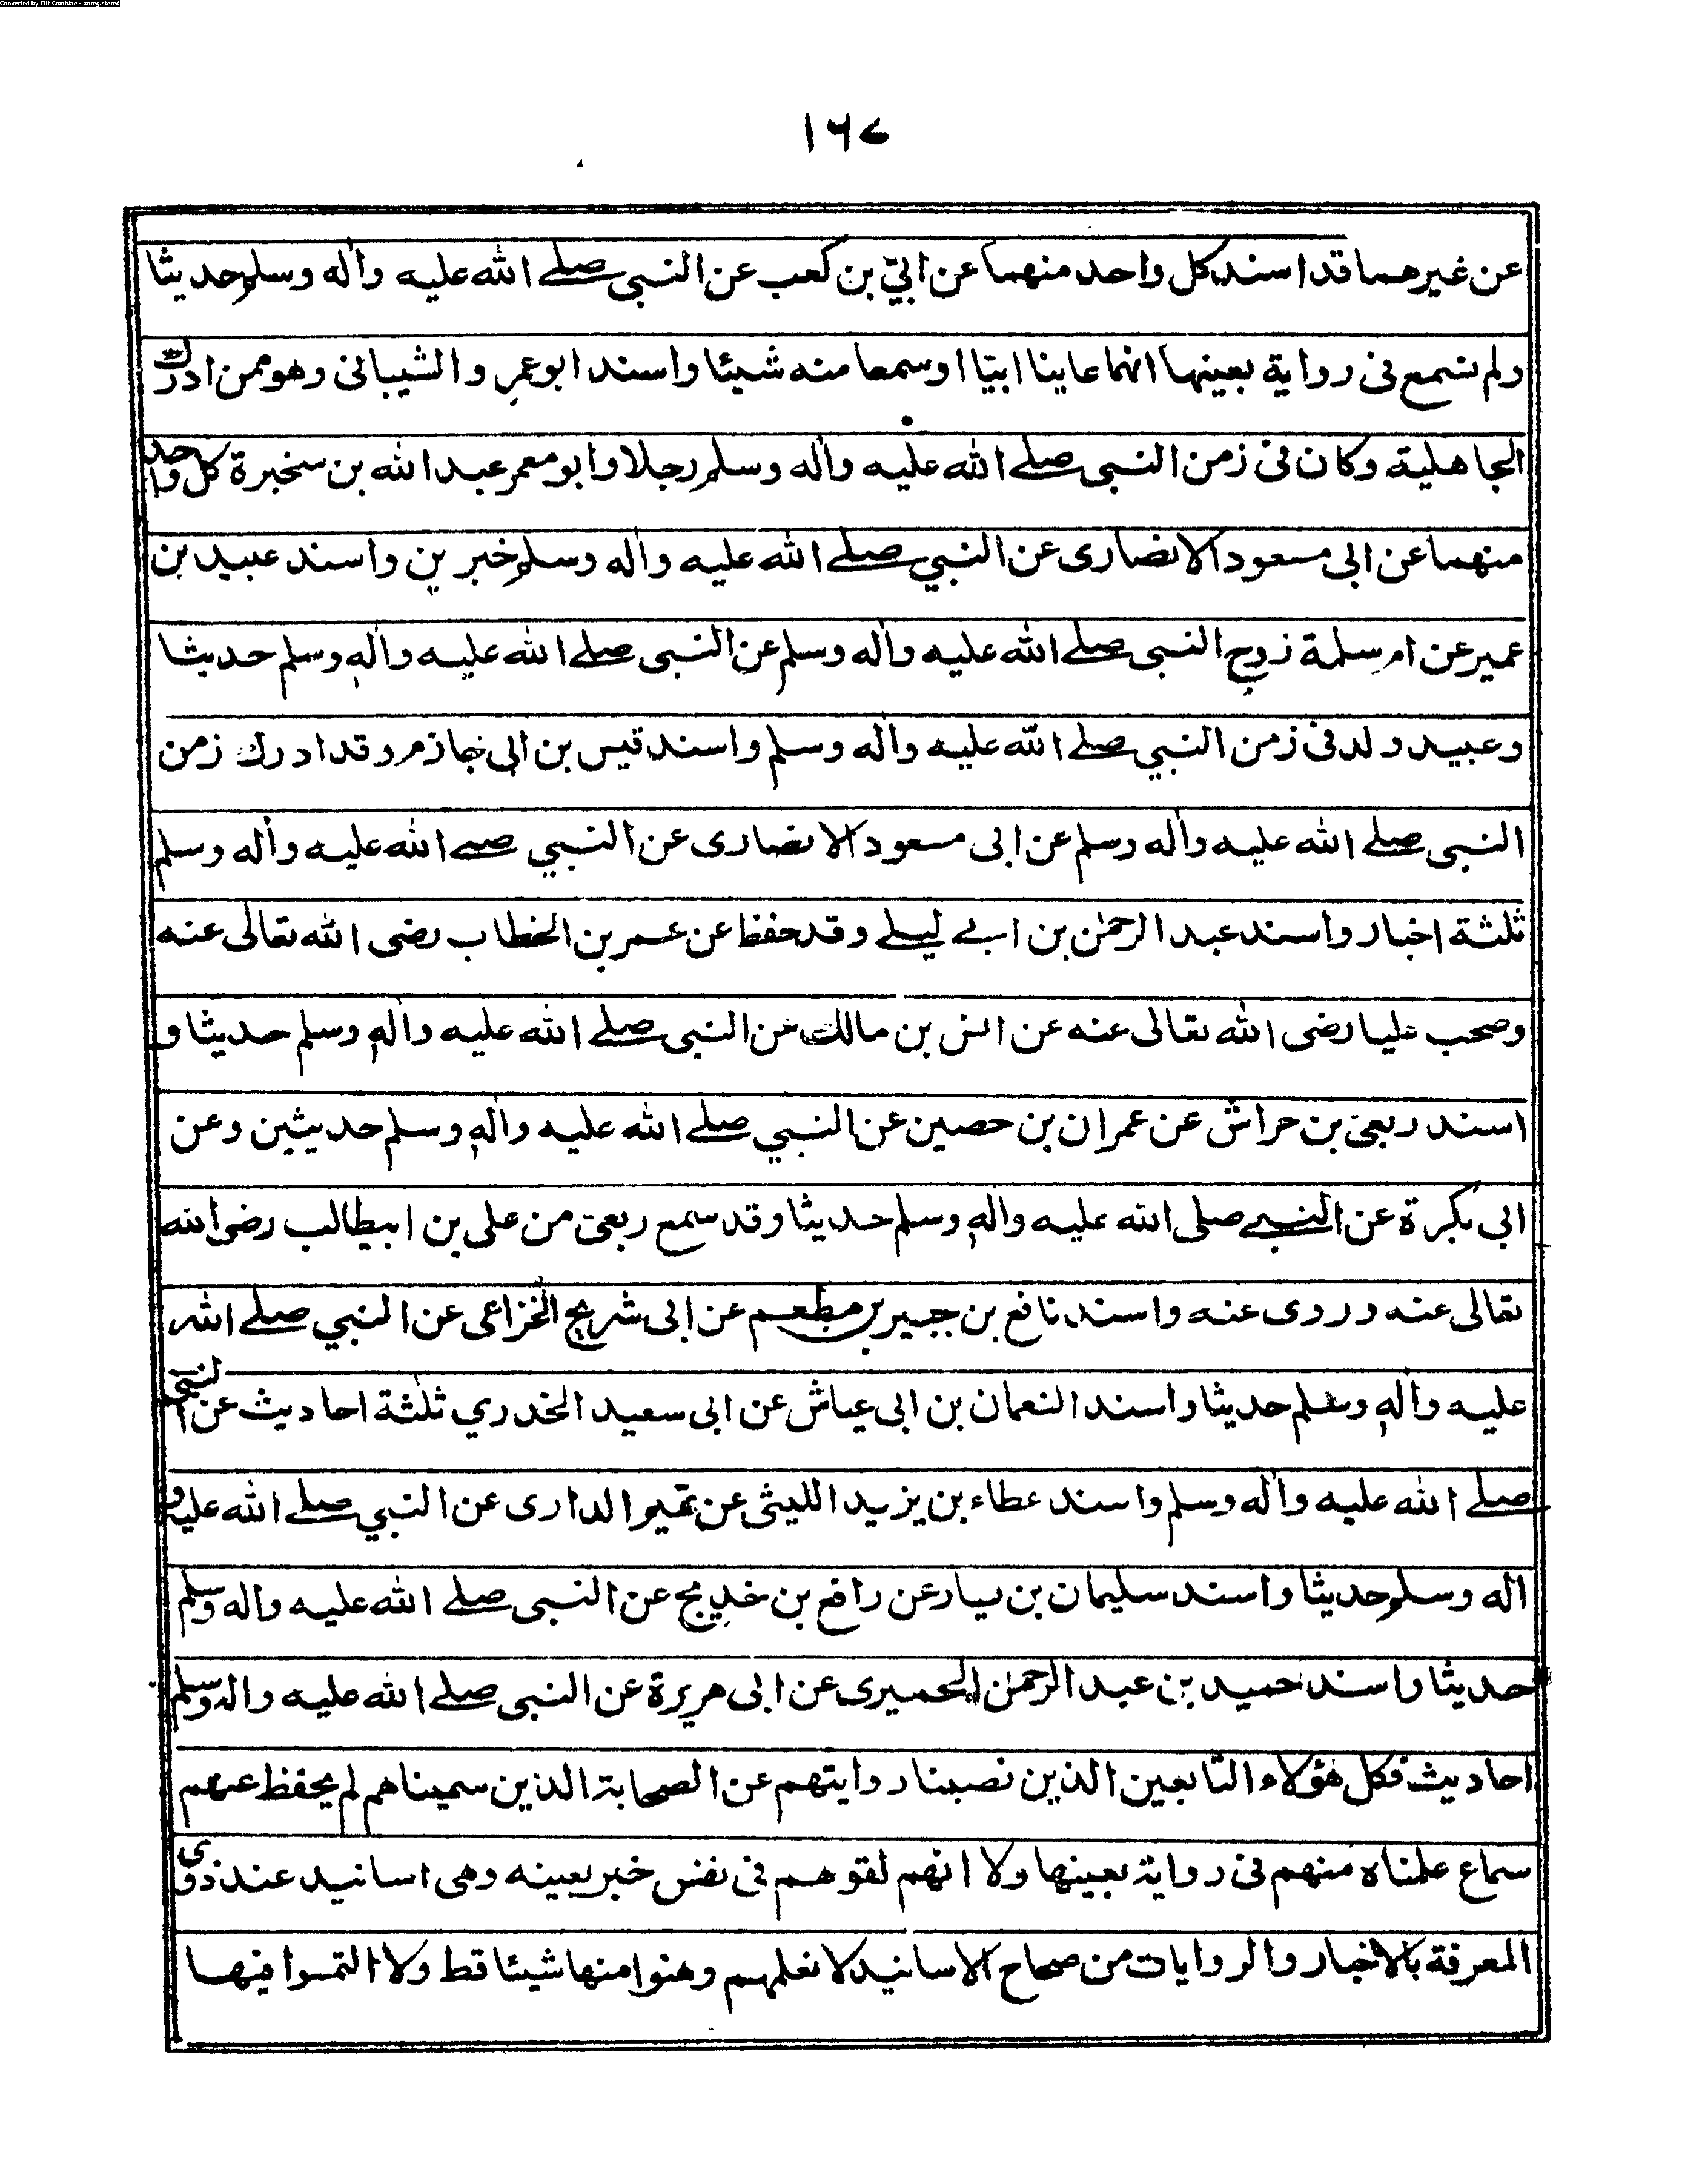 Converted by Tiff Combine - unregistered
١٦٧
عن غيرهما قد اسند كل واحد منهما عن ابيّ بن كعب عن النبى صلے الله عليه واٰله وسلم حديثا
ولم نسمع فى رواية بعينها انهما عاينا ابيّا او سمعا منه شيئا واسند ابو عمرو الشيبانى وهو ممن ادرك
الجاهلية وكان فى زمن النبى صلے الله عليه واٰله وسلم رجلا وابو معمر عبد الله بن سخبرة كل واحد
منهما عن ابى مسعود الانصارى عن النبي صلے الله عليه واٰله وسلم خبرين واسند عبيد بن
عمير عن ام سلمة زوج النبى صلے الله عليه واٰله وسلم عن النبى صلے الله عليه واٰله وسلم حديثا
وعبيد ولد فى زمن النبي صلے الله عليه واٰله وسلم واسند قيس بن ابى حازم وقد ادرك زمن
النبى صلے الله عليه واٰله وسلم عن ابى مسعود الانصارى عن النبي صلے الله عليه واٰله وسلم
ثلثة اخبار واسند عبد الرحمٰن بن ابے ليلے وقد حفظ عن عمر بن الخطاب رضى الله تعالى عنه
وصحب عليا رضى الله تعالى عنه عن انس بن مالك عن النبى صلے الله عليه واٰله وسلم حديثا و
اسند ربعى بن حراش عن عمران بن حصين عن النبي صلے الله عليه واٰله وسلم حديثين وعن
ابى بكرة عن النبے صلى الله عليه واٰله وسلم حديثا وقد سمع ربعى من على بن ابيطالب رضى الله
تعالى عنه وروى عنه واسند نافع بن جبير بن مطعم عن ابى شريح الخزاعى عن النبي صلے الله
عليه واٰله وسلم حديثا واسند النعمان بن ابى عياش عن ابى سعيد الخدري ثلثة احاديث عن النبى
صلے الله عليه واٰله وسلم واسند عطاء بن يزيد الليثى عن تميم الدارى عن النبي صلے الله عليه و
اله وسلم حديثا واسند سليمان بن يسار عن رافع بن خديج عن النبى صلے الله عليه واله وسلم
حديثا واسند حميد بن عبد الرحمٰن الحميرى عن ابى هريرة عن النبى صلے الله عليه واله وسلم
احاديث فكل هؤلاء التابعين الذين نصبنا روايتهم عن الصحابة الذين سميناهم لم يحفظ عنهم
سماع علمناه منهم فى رواية بعينها ولا انهم لقوهم فى نفس خبر بعينه وهى اسانيد عند ذوى
المعرفة بالاخبار والروايات من صحاح الاسانيد لا نعلمهم وهنوا منها شيئا قط ولا التمسوا فيها